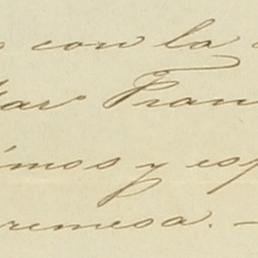 s con la
Mar Fran
imos y esp
remesa. —